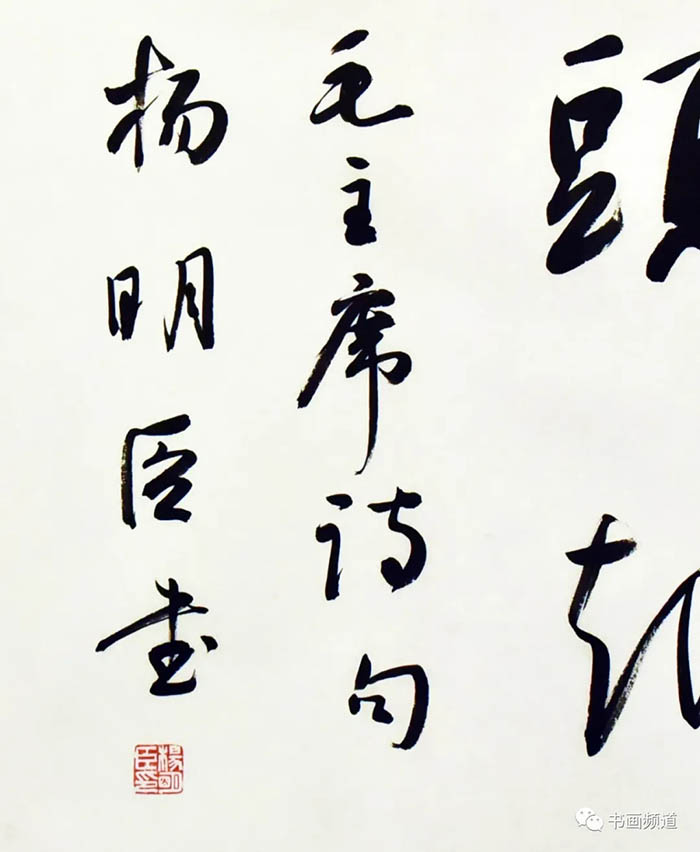 頭
毛主席诗句
杨明臣书
楊明臣印
书画频道